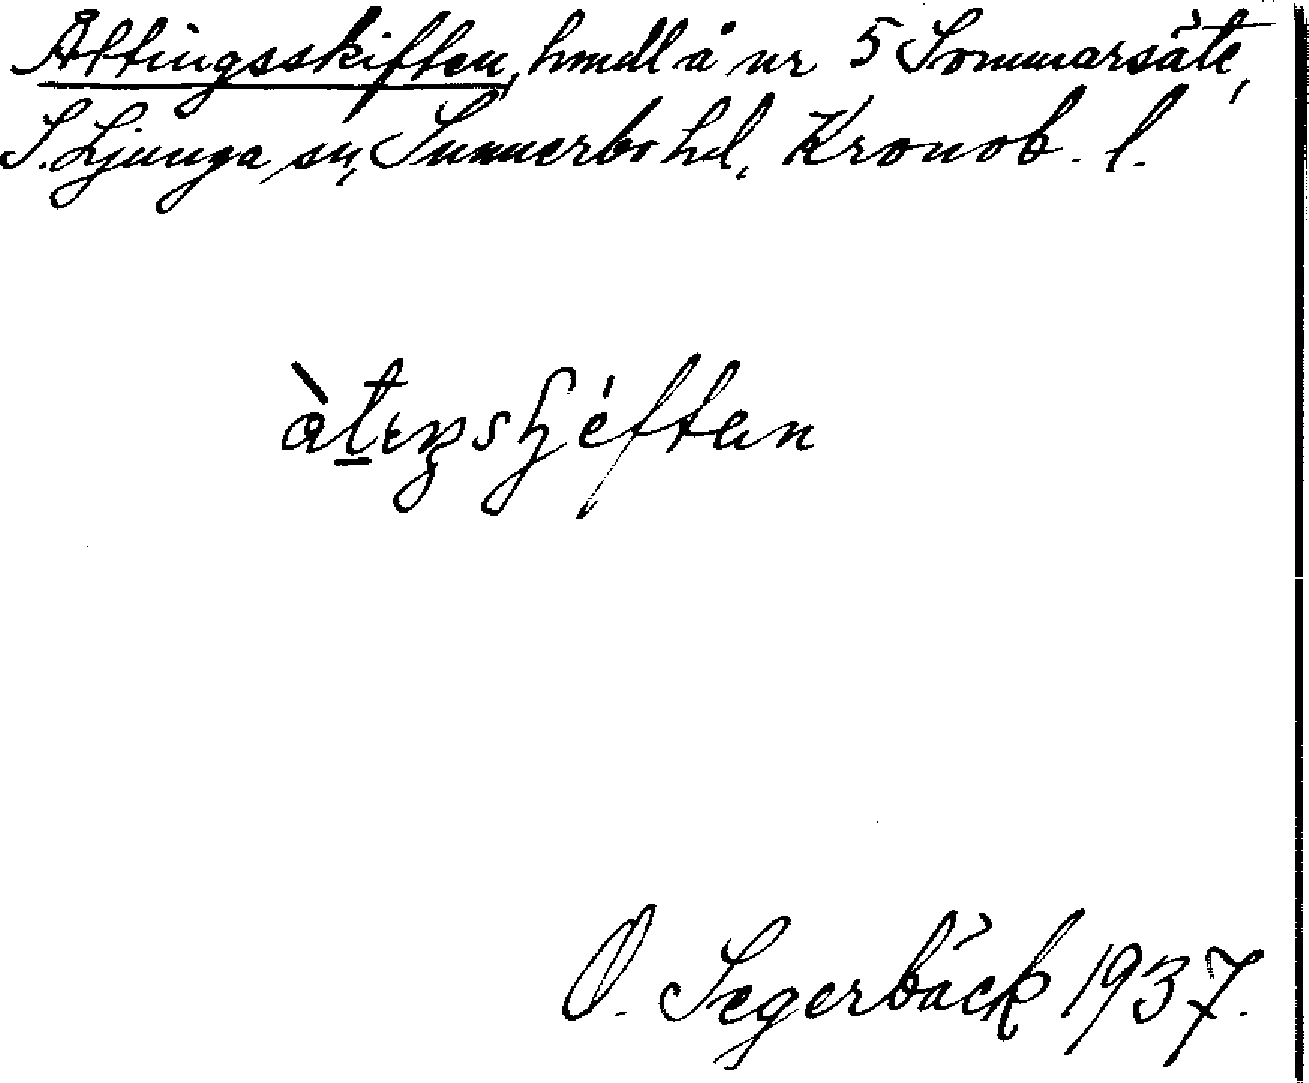 Åttingsskiften, hmdl å nr 5 Sommarsäte,
S. Ljunga sn, Sunnerbo hd, Kronob. l.
O. Segerbäck 1937.